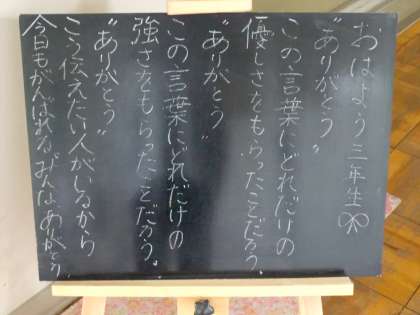 おはよう三年生
"ありがとう"
この言葉にどれだけの
優しさをもらったことだろう。
"ありがとう"
この言葉にどれだけの
強さをもらったことだろう。
"ありがとう"
こう伝えたい人がいるから
今日もがんばれる。みんな、ありがとう。